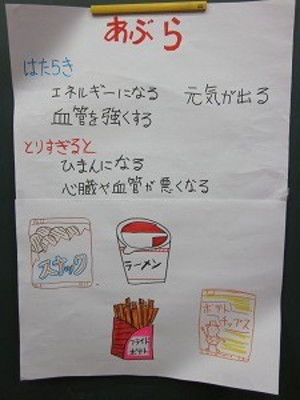 あぶら
はたらき
エネルギーになる 元気が出る
血管を強くする
とりすぎると
ひまんになる
心臓や血管が悪くなる
スナック
ラーメン
フライド
ポテト
ポテト
チップス